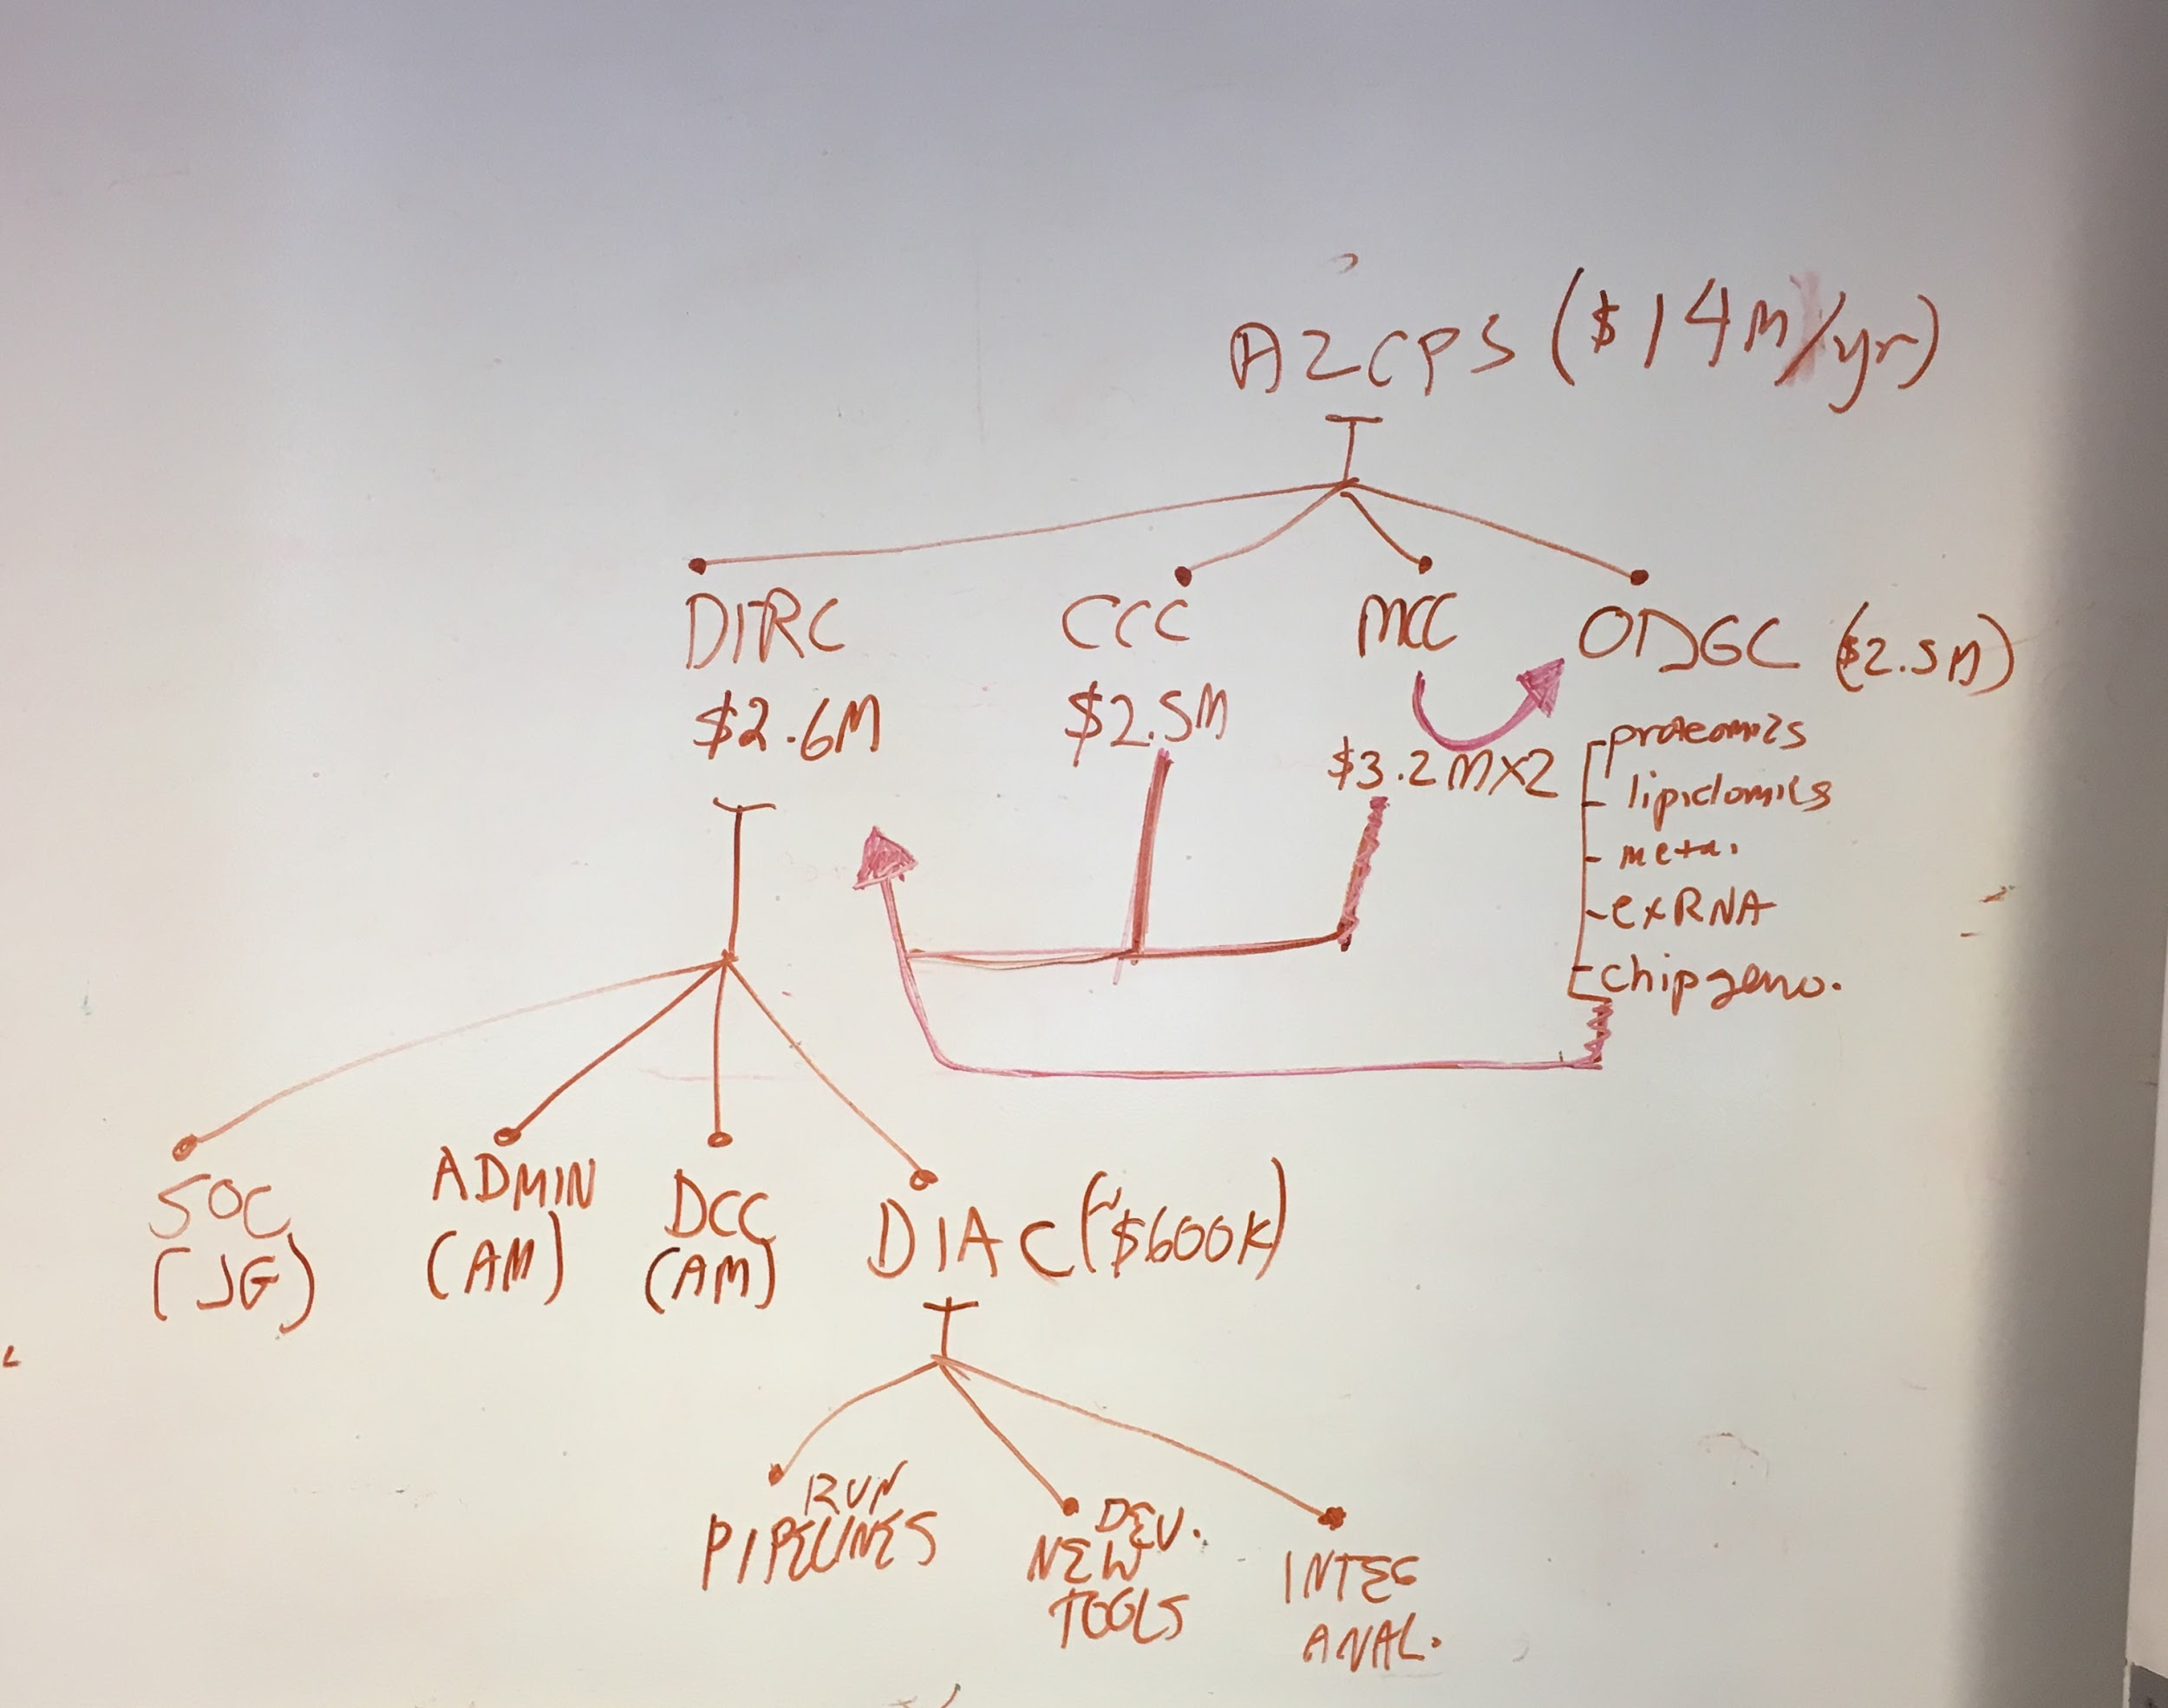 A2CPS ($14M/yr)
DIRC
$2.6M
CCC
$2.5M
MCC
$3.2M X2
ODGC ($2.5M)
proteomics
lipidomics
meta.
exRNA
chip geno.
SOC
(JG)
ADMIN
(AM)
DCC
(AM)
DIAC (~$600K)
RUN
PIPELINES
DEV.
NEW
TOOLS
INTEG
ANAL.